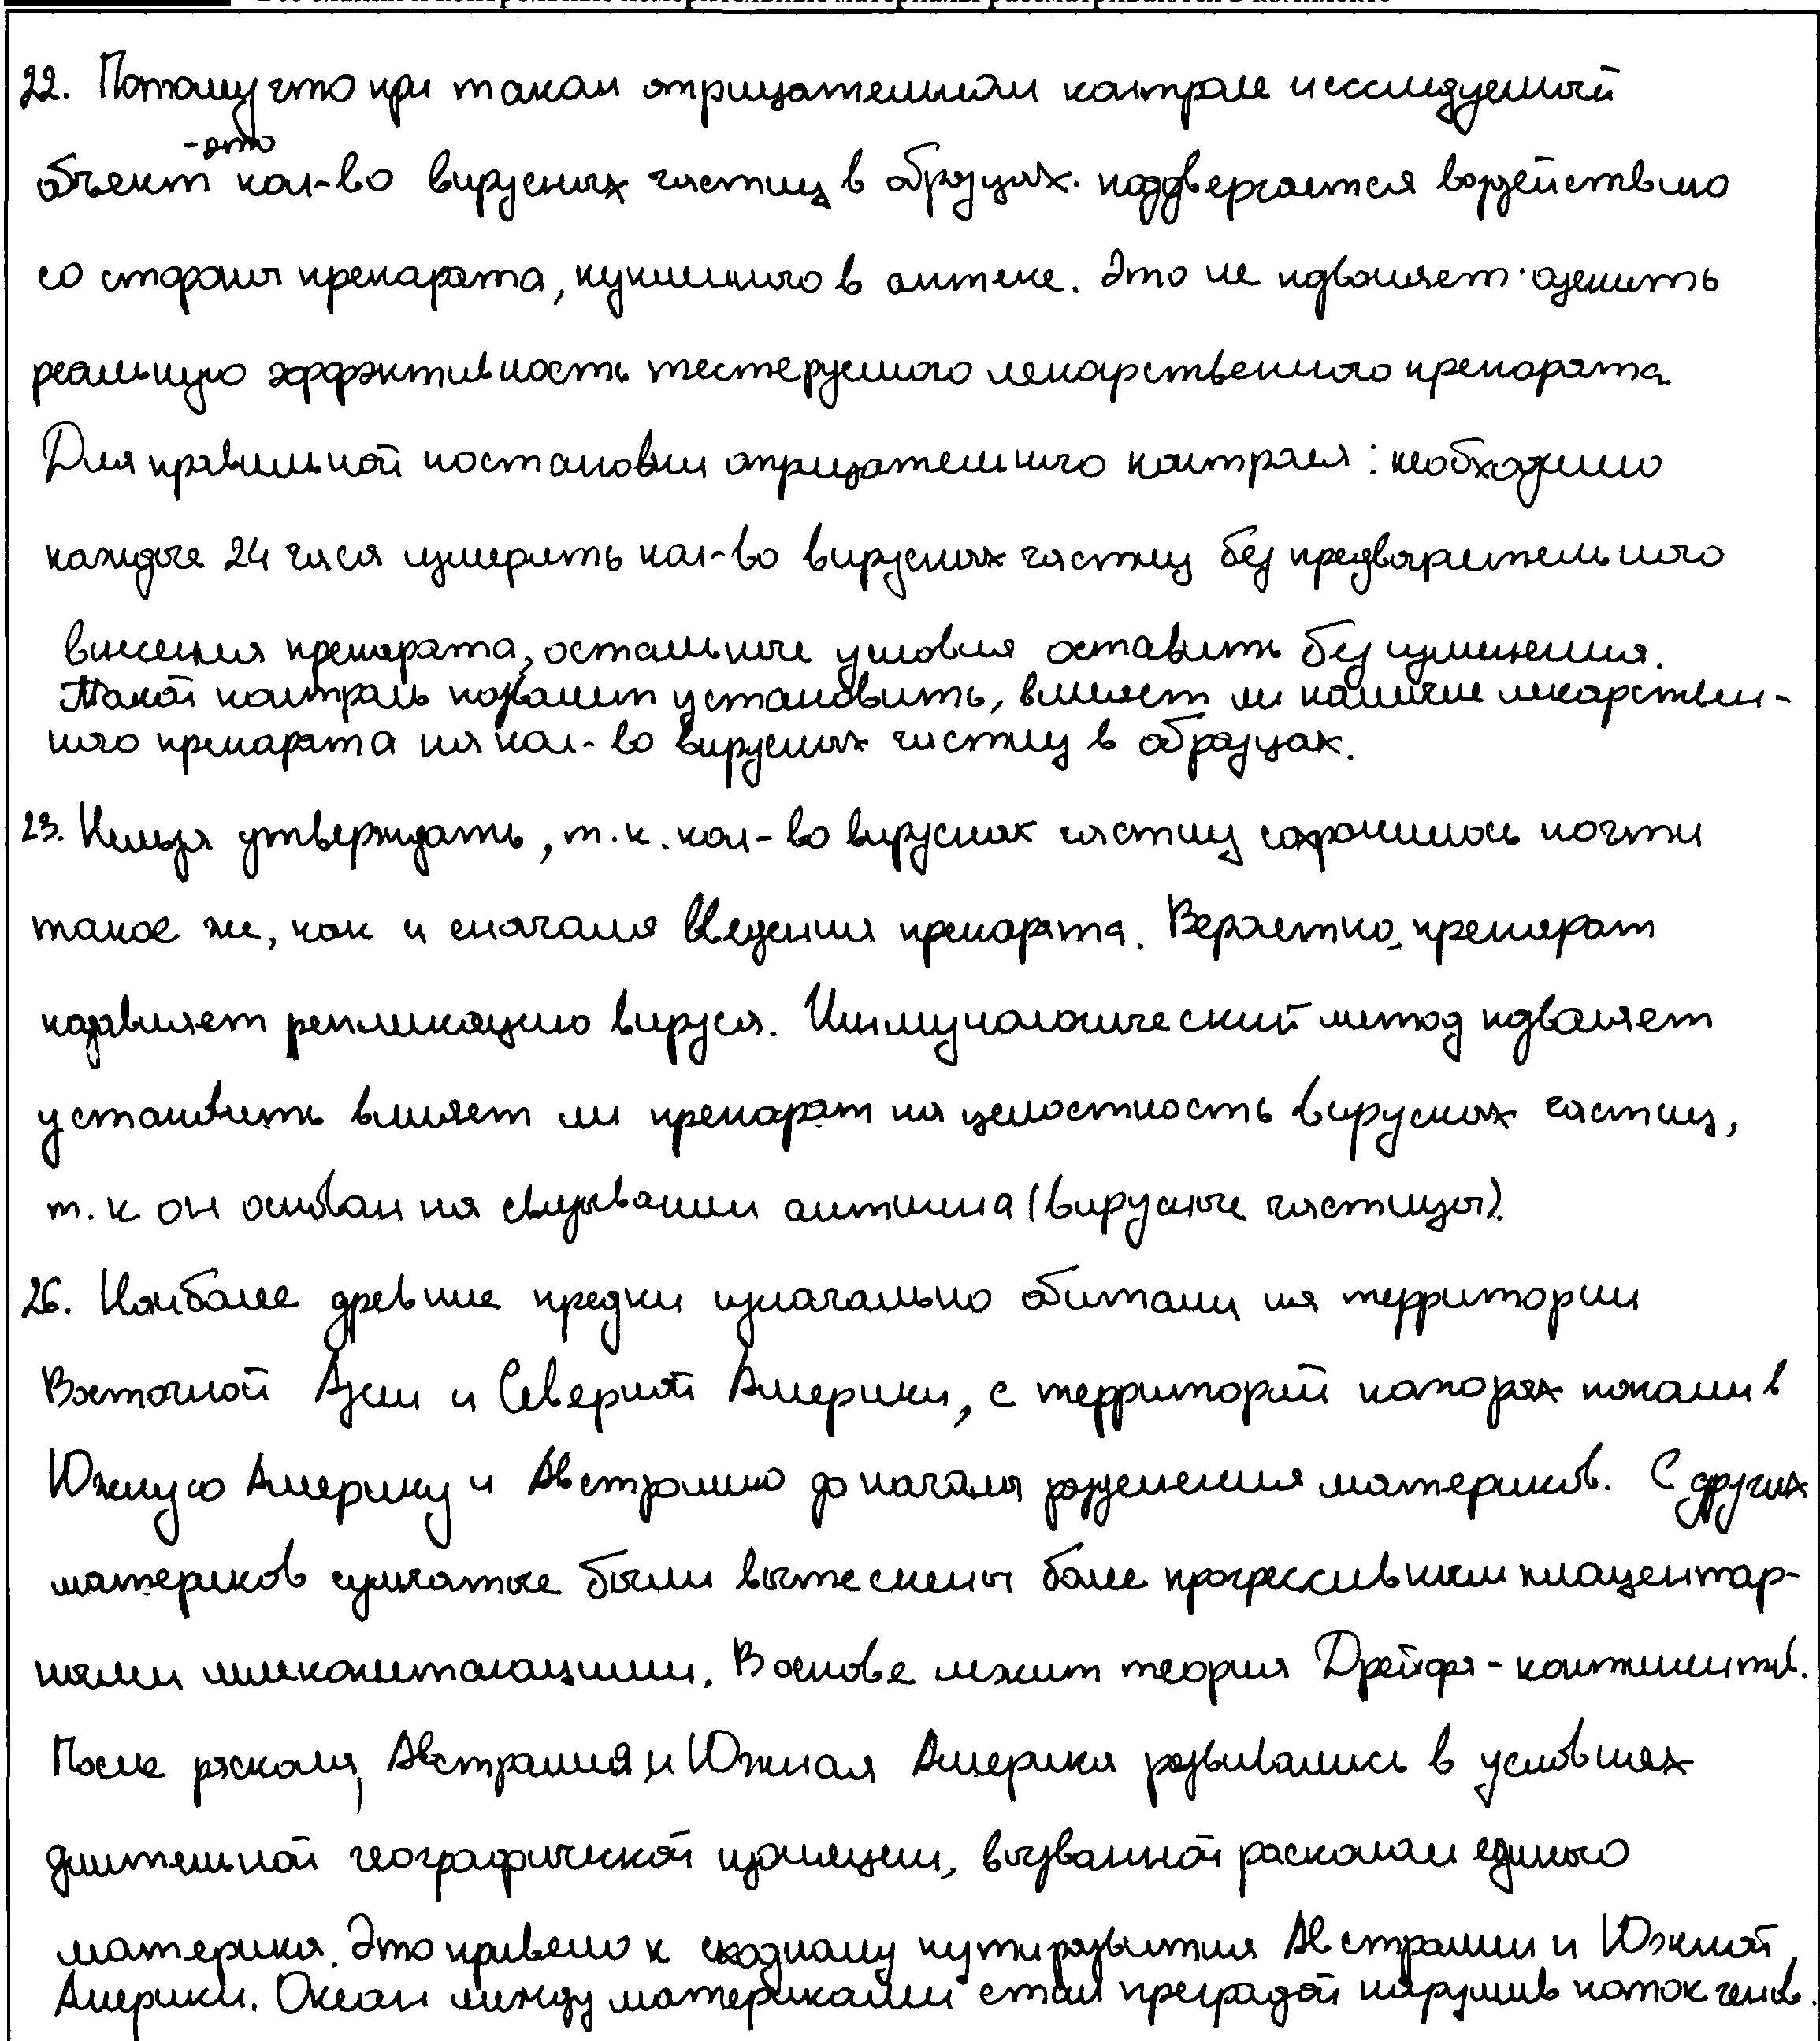 22. Потому что при таком отрицательном контроле исследуемый
объект -это кол-во вирусных частиц в образцах. поддвергается воздействию
со стороны препарата, купленного в аптеке. Это не позволяет оценить
реальную эффэктивность тестеруемого лекарственного препарата
Для правильной постановки отрицательного контроля: необходимо
каждые 24 часа измерять кол-во вирусных частиц без предварительного
внесения препарата, остальные условия оставить без изменения.
Такой контроль позволит установить, влияет ли наличие лекарствен-
ного препарата на кол-во вирусных частиц в образцах.
23. Нельзя утверждать, т.к. кол-во вирусных частиц сохранилось почти
такое же, как и сначала введения препарата. Вероятно, препарат
подавляет репликацию вируса. Иммунологический метод позволяет
установить влияет ли препарат на целостность вирусных частиц,
т.к он основан на связывании антигена (вирусные частицы).
26. Наиболее древние предки изначально обитали на территории
Восточной Азии и Северной Америки, с территорий которых попали в
Южную Америку и Австралию до начала разделения материков. С других
материков сумчатые были вытеснены более прогрессивными плацентар-
ными млекопитающими. В основе лежит теория Дрейфа-континентов.
После раскола, Австралия и Южная Америка развивались в условиях
длительной географической изоляции, вызванной расколом единого
материка. Это привело к сходному пути развития Австралии и Южной
Америки. Океан между материками стал преградой нарушив поток генов.